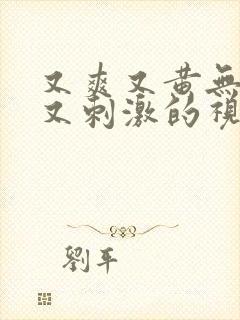 又爽又黄無
又刺激的視
劉平